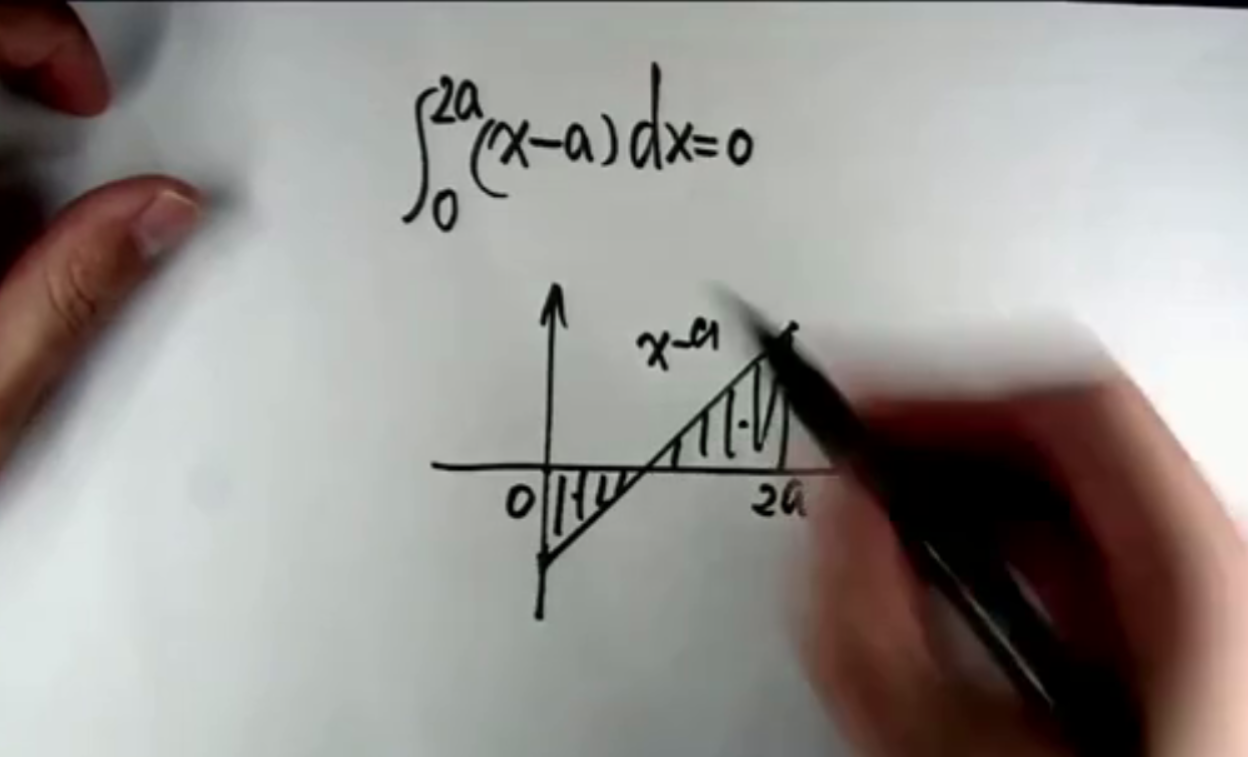 ∫₀²ᵃ(x-a)dx=0
x-a
0 2a